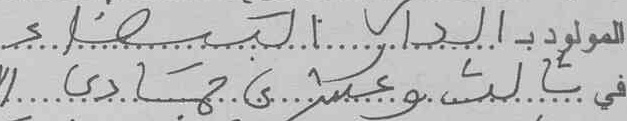 المولود بـ الدار البيضاء
في ثالث وعشري جمادى ال